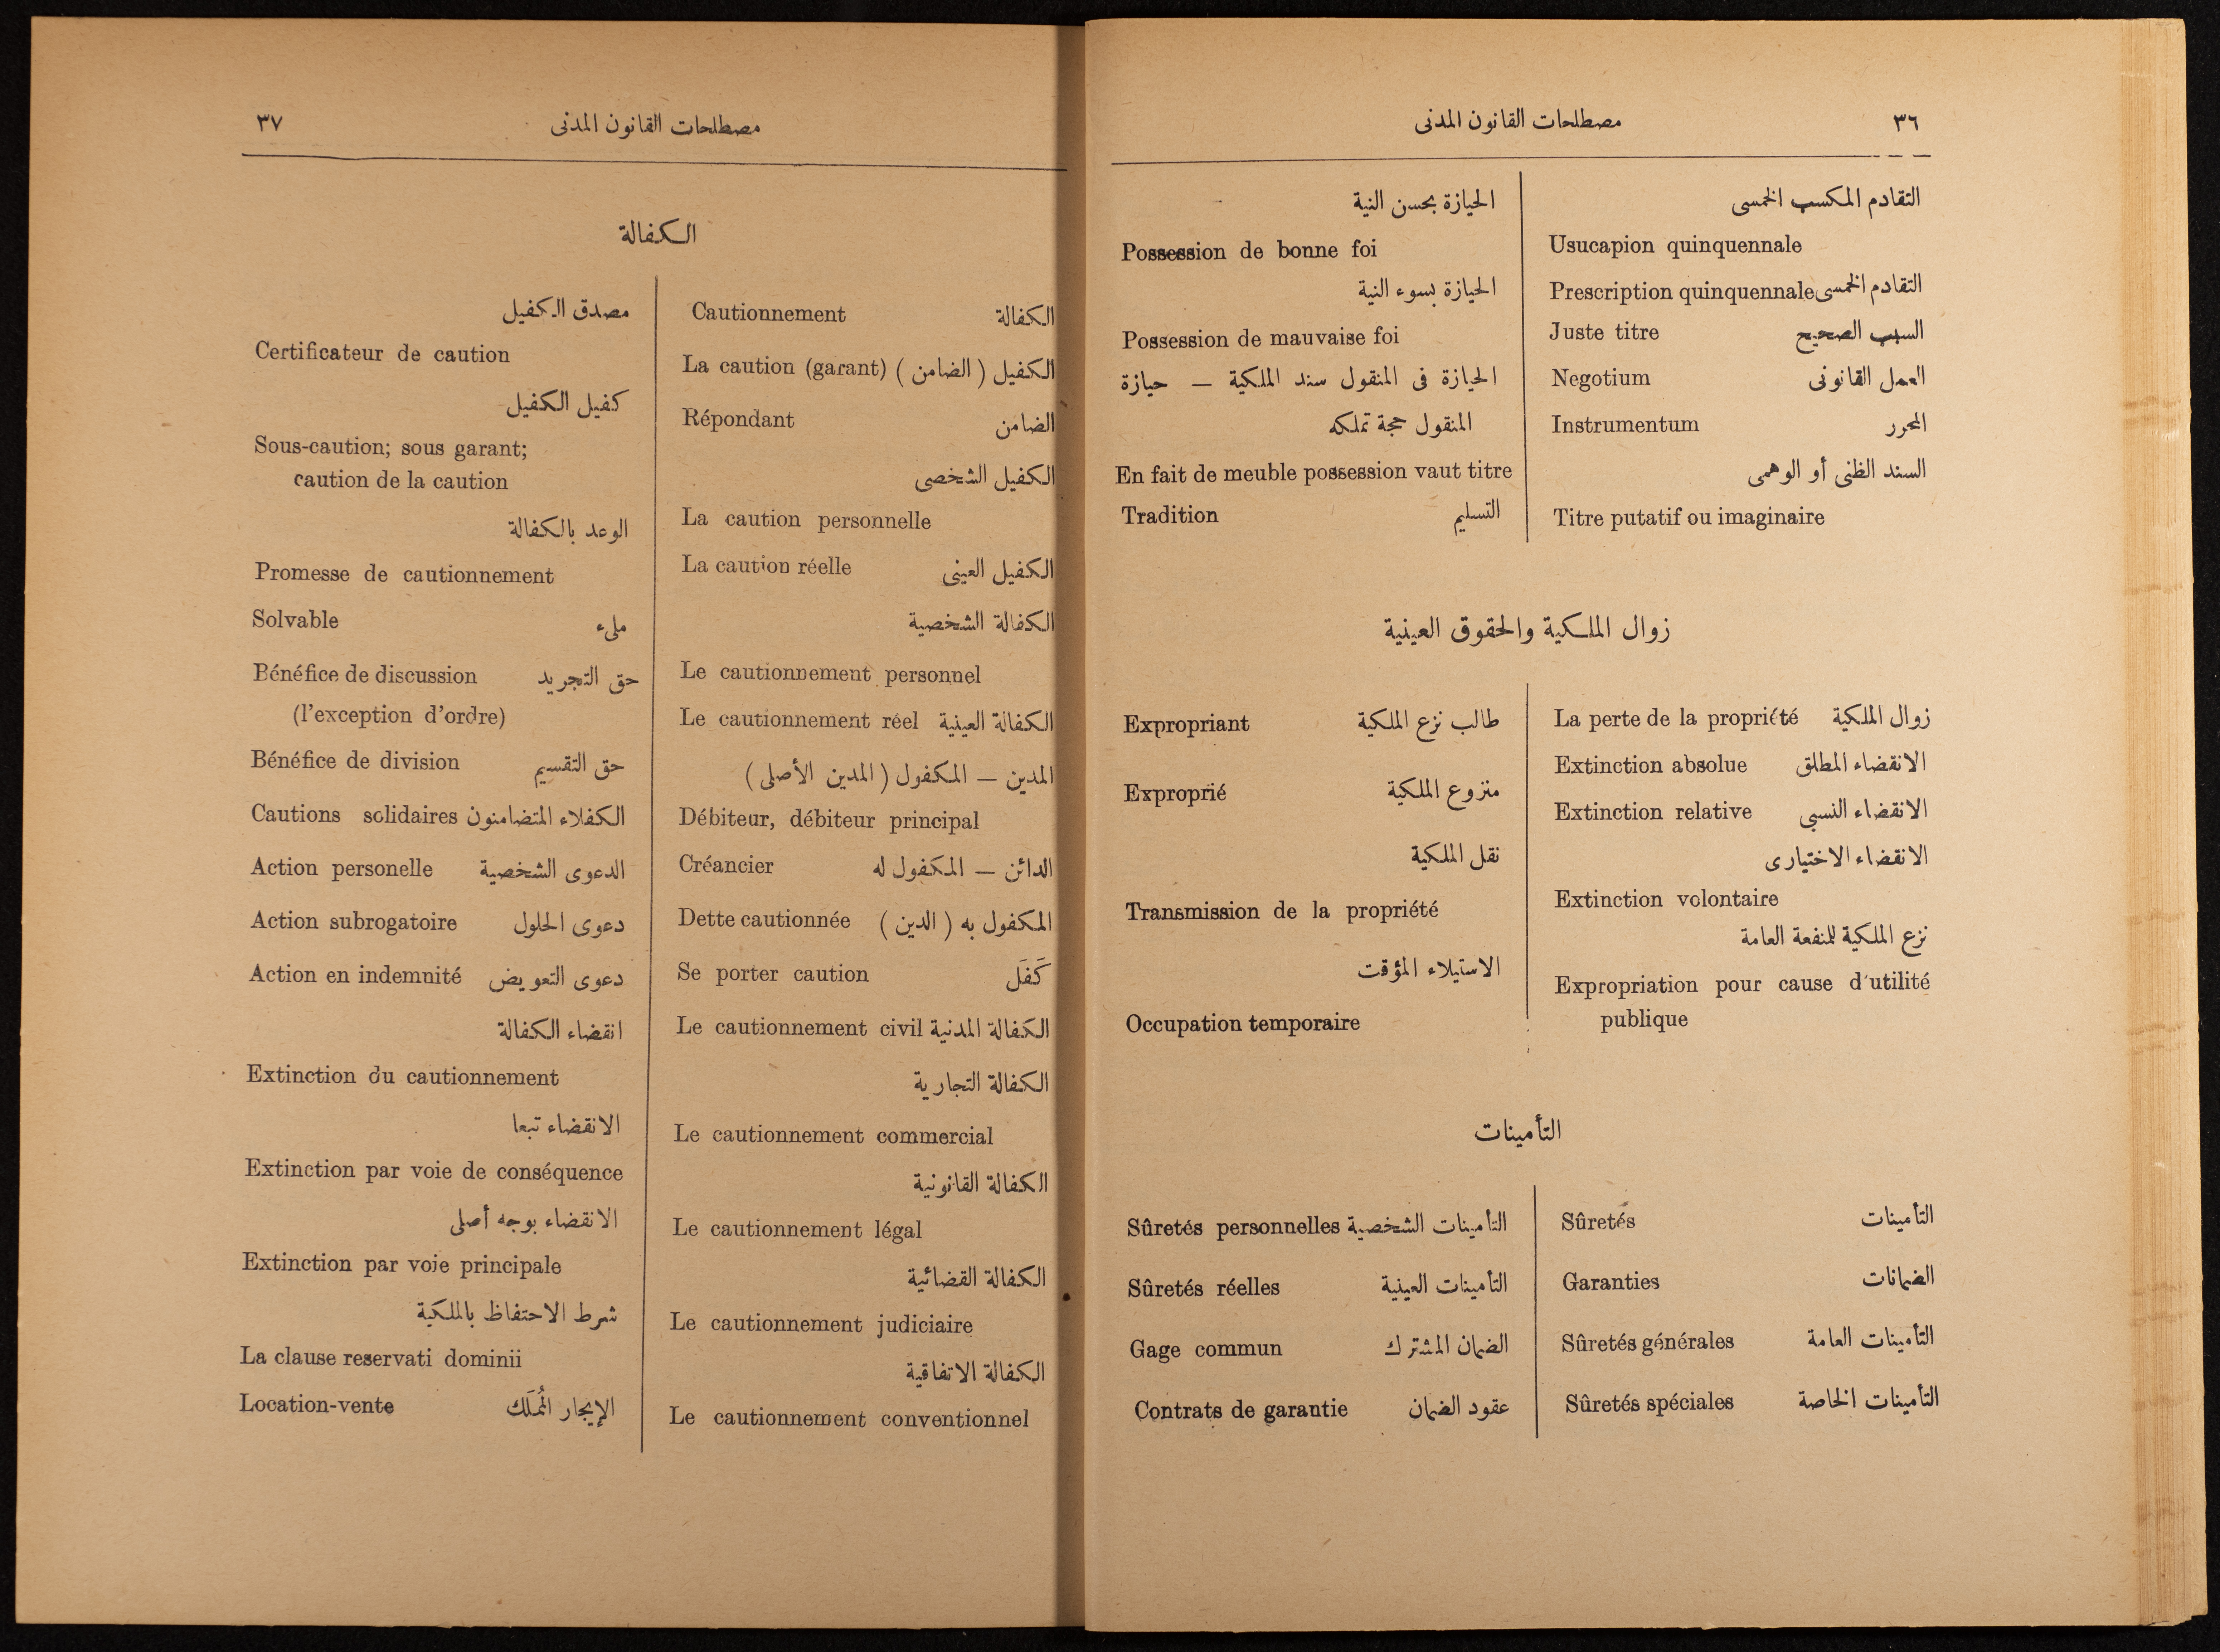 ٣٦
مصطلحات القانون المدنى
التقادم المكسب الخمسى
Usucapion quinquennale
Prescription quinquennale التقادم الخمسى
Juste titre السبب الصحيح
Negotium العمل القانونى
Instrumentum المحرر
السند الظنى أو الوهمى
Titre putatif ou imaginaire
الحيازة بحسن النية
Possession de bonne foi
الحيازة بسوء النية
Possession de mauvaise foi
الحيازة فى المنقول سند الملكية — حيازة
المنقول حجة تملكه
En fait de meuble possession vaut titre
Tradition التسليم
زوال الملكية والحقوق العينية
La perte de la propriété زوال الملكية
Extinction absolue الانقضاء المطلق
Extinction relative الانقضاء النسبى
الانقضاء الاختيارى
Extinction volontaire
نزع الملكية للمنفعة العامة
Expropriation pour cause d'utilité
publique
Expropriant طالب نزع الملكية
Exproprié منزوع الملكية
نقل الملكية
Transmission de la propriété
الاستيلاء المؤقت
Occupation temporaire
التأمينات
Sûretés التأمينات
Garanties الضمانات
Sûretés générales التأمينات العامة
Sûretés spéciales التأمينات الخاصة
Sûretés personnelles التأمينات الشخصية
Sûretés réelles التأمينات العينية
Gage commun الضمان المشترك
Contrats de garantie عقود الضمان
مصطلحات القانون المدنى
٣٧
الكفالة
Cautionnement الكفالة
La caution (garant) الكفيل (الضامن)
Répondant الضامن
الكفيل الشخصى
La caution personnelle
La caution réelle الكفيل العينى
الكفالة الشخصية
Le cautionnement personnel
Le cautionnement réel الكفالة العينية
المدين — المكفول (المدين الأصلى)
Débiteur, débiteur principal
Créancier الدائن — المكفول له
Dette cautionnée المكفول به (الدين)
Se porter caution كَفَل
Le cautionnement civil الكفالة المدنية
الكفالة التجارية
Le cautionnement commercial
الكفالة القانونية
Le cautionnement légal
الكفالة القضائية
Le cautionnement judiciaire
الكفالة الاتفاقية
Le cautionnement conventionnel
مصدق الكفيل
Certificateur de caution
كفيل الكفيل
Sous-caution; sous garant;
caution de la caution
الوعد بالكفالة
Promesse de cautionnement
Solvable ملىء
Bénéfice de discussion حق التجريد
(l'exception d'ordre)
Bénéfice de division حق التقسيم
Cautions solidaires الكفلاء المتضامنون
Action personelle الدعوى الشخصية
Action subrogatoire دعوى الحلول
Action en indemnité دعوى التعويض
انقضاء الكفالة
Extinction du cautionnement
الانقضاء تبعا
Extinction par voie de conséquence
الانقضاء بوجه أصلى
Extinction par voie principale
شرط الاحتفاظ بالملكية
La clause reservati dominii
Location-vente الإيجار المُمَلَّك